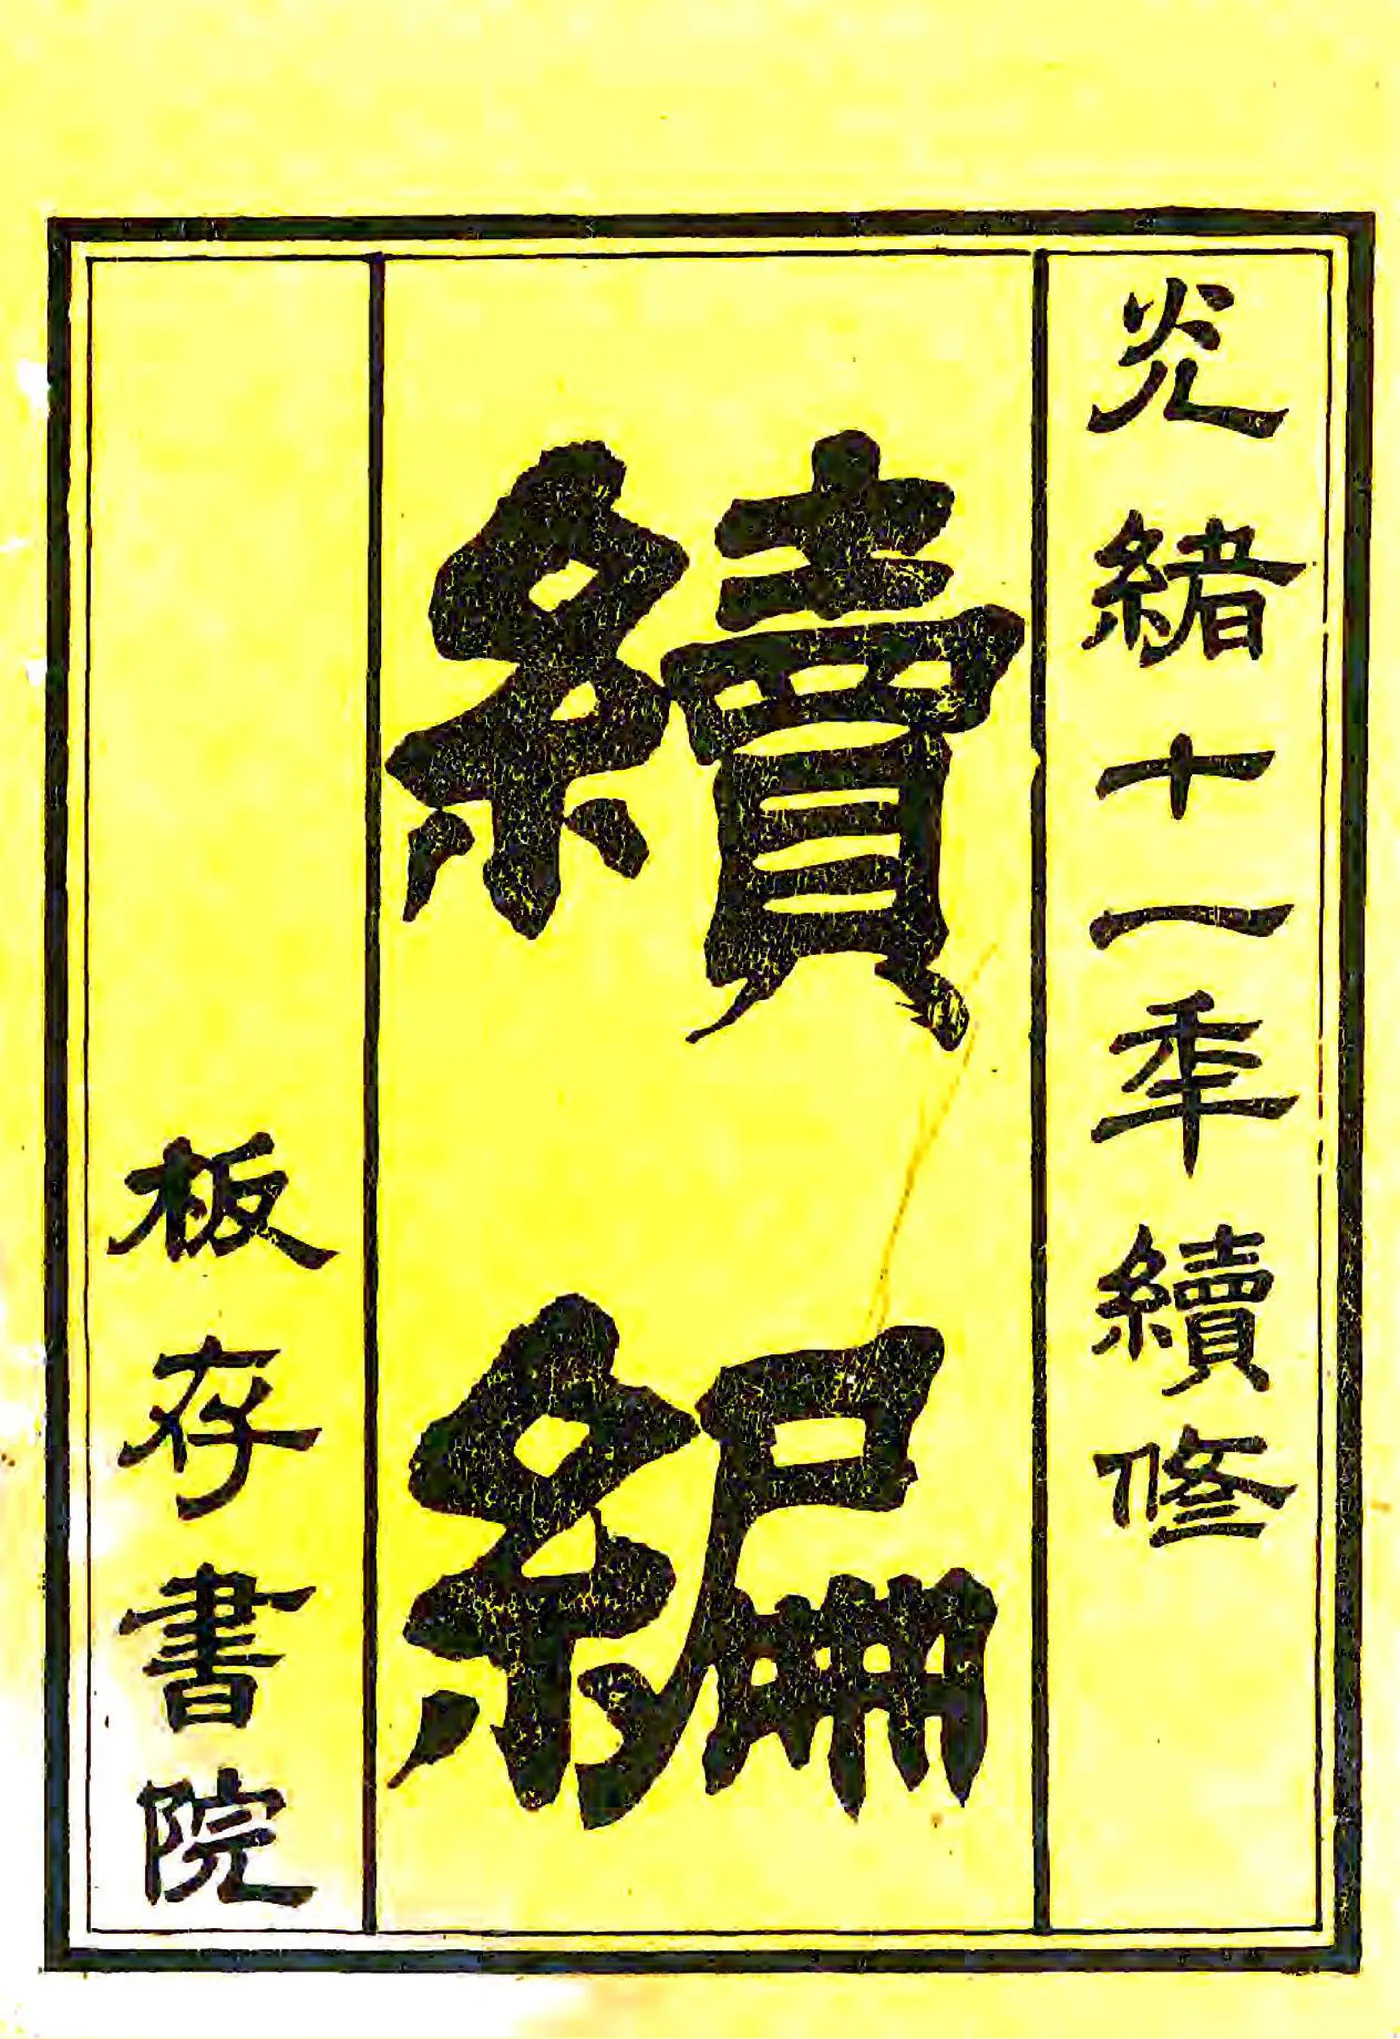 光緒十一年續修
續編
板存書院